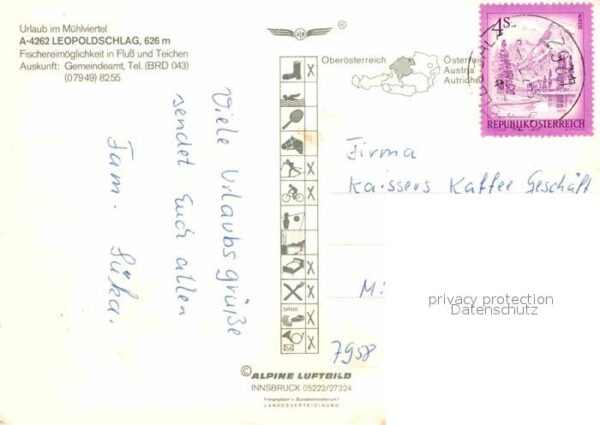 Urlaub im Mühlviertel
A-4262 LEOPOLDSCHLAG, 626 m
Fischereimöglichkeit in Fluß und Teichen
Auskunft: Gemeindeamt, Tel. (BRD 043)
(07949) 8255
Viele Urlaubsgrüße
sendet Euch allen
Fam. Süka.
X
X
X
X
X
BANK
X
X
© ALPINE LUFTBILD
INNSBRUCK 05222/27324
Freigegeben v. Bundesministerium f.
LANDESVERTEIDIGUNG
Oberösterreich
Österreich
Austria
Autriche
4 S.
REPUBLIK ÖSTERREICH
Firma
Kaissers Kaffee Geschäft
M:
privacy protection
Datenschutz
7958